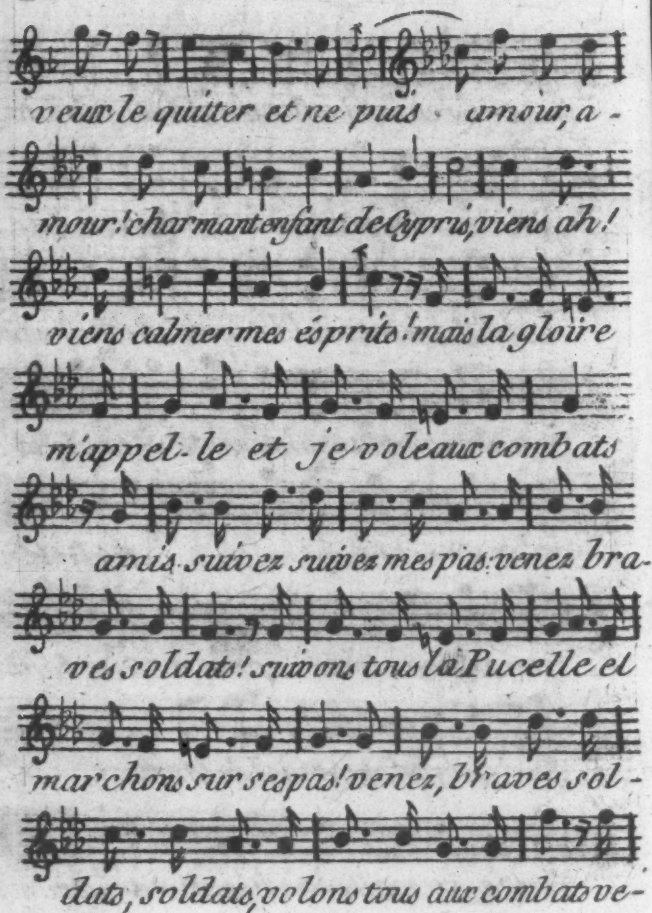 veux le quitter et ne puis amour, a-
mour! charmant enfant de Cypris, viens ah!
viens calmer mes ésprits! mais la gloire
m'appel-le et je vole aux combats
amis suivez suivez mes pas: venez bra-
ves soldats! suivons tous la Pucelle et
marchons sur ses pas! venez, braves sol-
dats, soldats, volons tous aux combats ve-